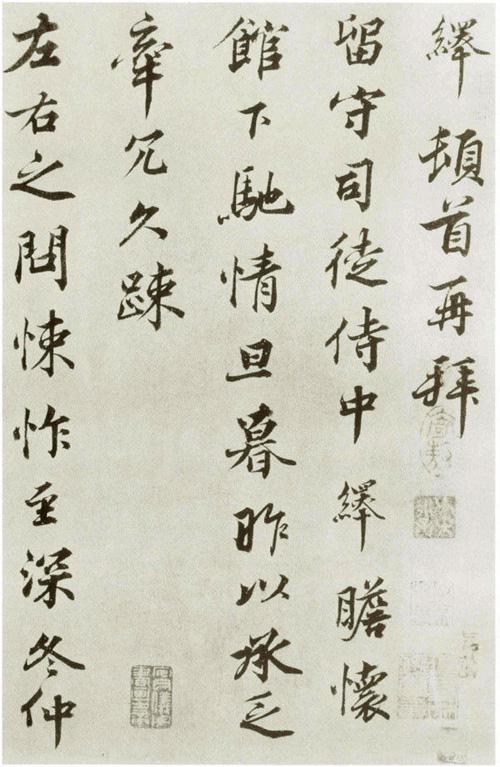 繹頓首再拜
留守司徒侍中 繹瞻懷
館下馳情旦暮昨以承乏
牽冗久踈
左右之問悚怍至深冬仲